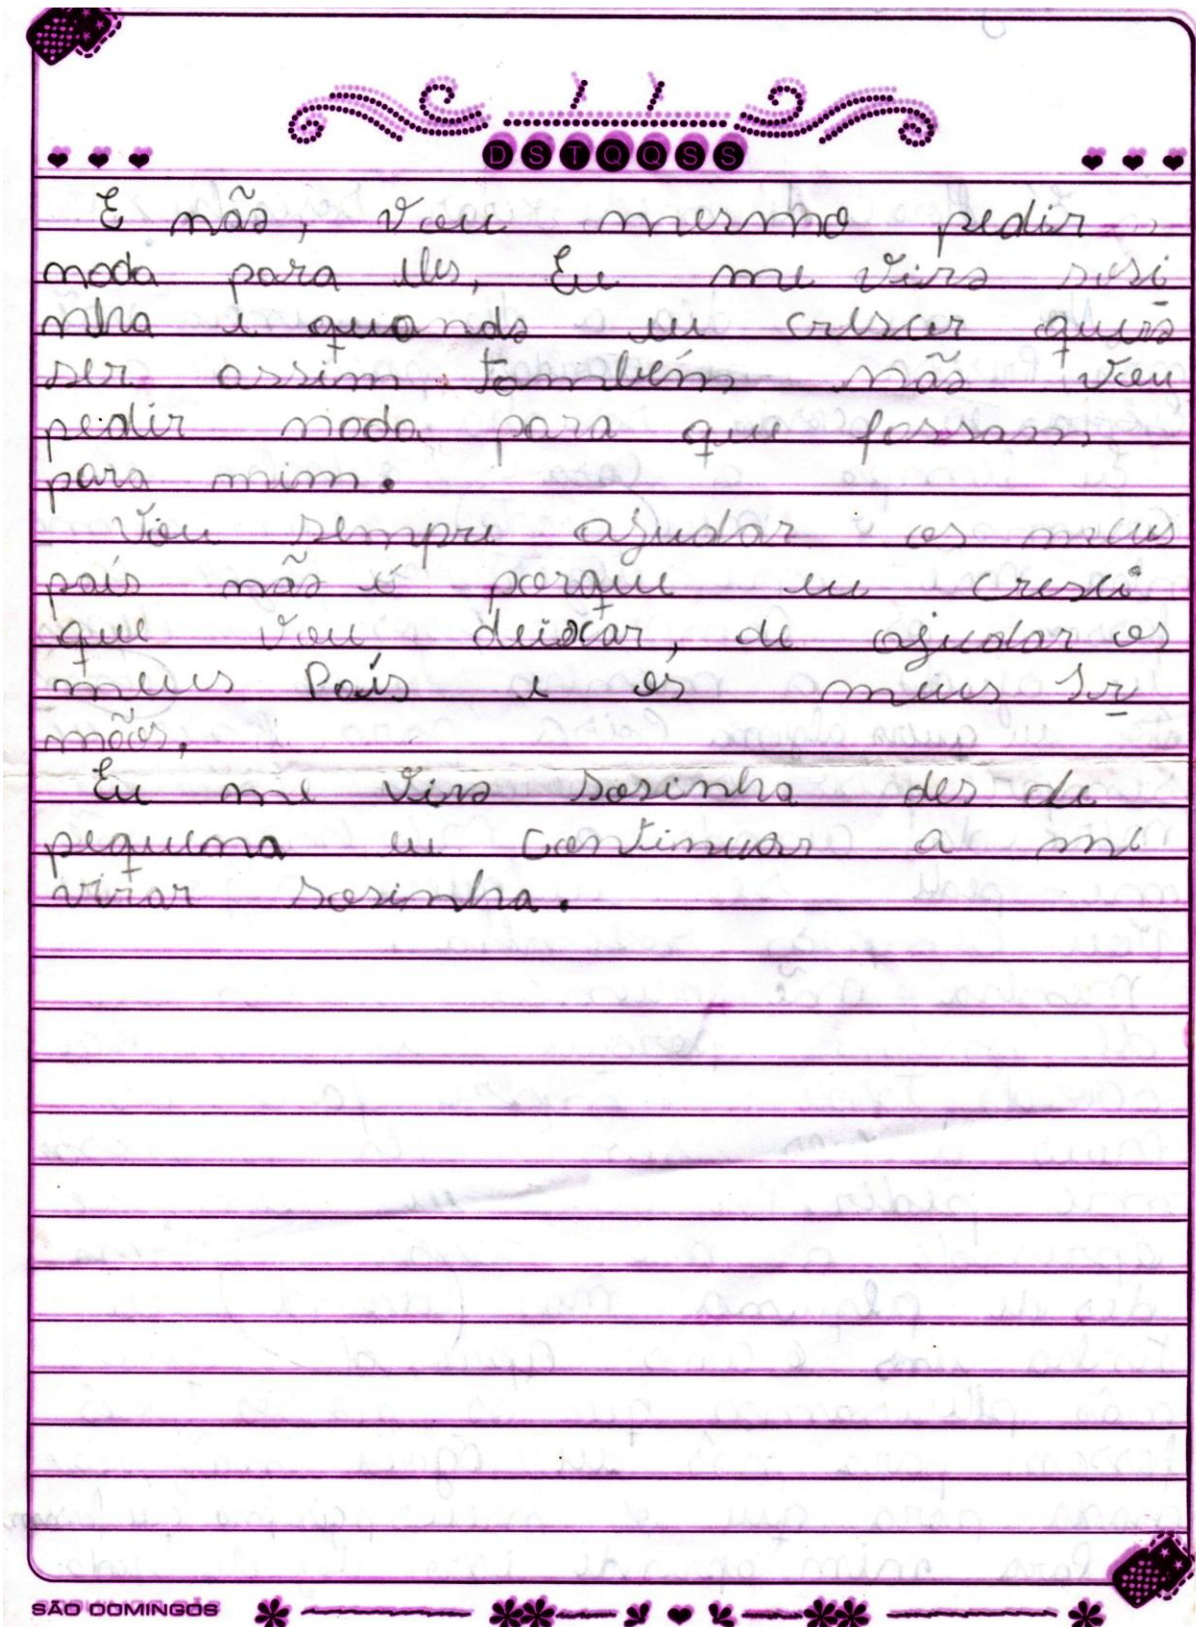 D S T Q Q S S
E não, vou mesmo pedir
nada para eles, Eu me viro sosi
nha e quando eu crescer quero
ser assim também não vou
pedir nada para que fossam
para mim.
Vou sempre ajudar os meus
país não é porque eu cresci
que vou deixar, de ajudar os
meus País e os meus Ir
mãos,
Eu me viro sosinha des de
pequena eu continuar a me
virar sosinha.
SÃO DOMINGOS